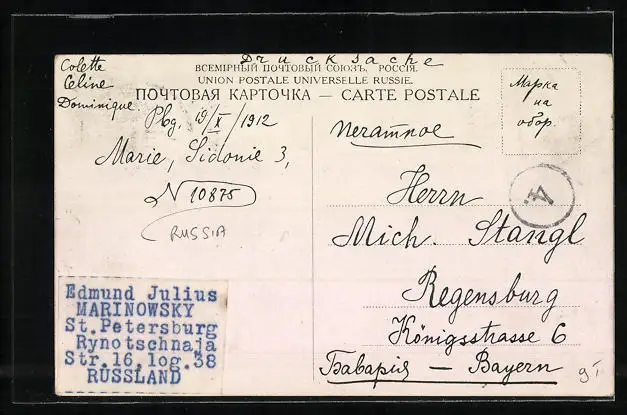 Drucksache
ВСЕМІРНЫЙ ПОЧТОВЫЙ СОЮЗЪ. РОССІЯ.
UNION POSTALE UNIVERSELLE RUSSIE.
ПОЧТОВАЯ КАРТОЧКА — CARTE POSTALE
Colette
Céline
Dominique
Pbg, 19/X/1912
Marie, Sidonie 3,
N 10875
RUSSIA
Edmund Julius
MARINOWSKY
St.Petersburg
Rynotschnaja
Str.16,log.38
RUSSLAND
Марка
на
обор.
печатное
Herrn
Mich. Stangl
Regensburg
Königsstrasse 6
Баварія — Bayern